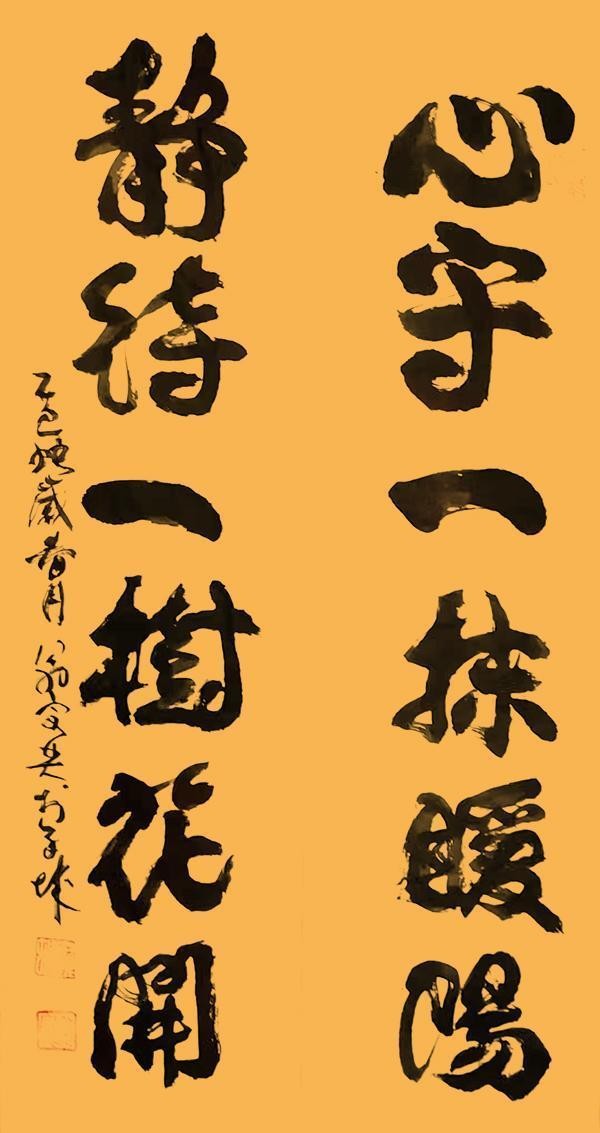 心守一抹暖陽
靜待一樹花開
乙巳 歲春月 翁 於羊城